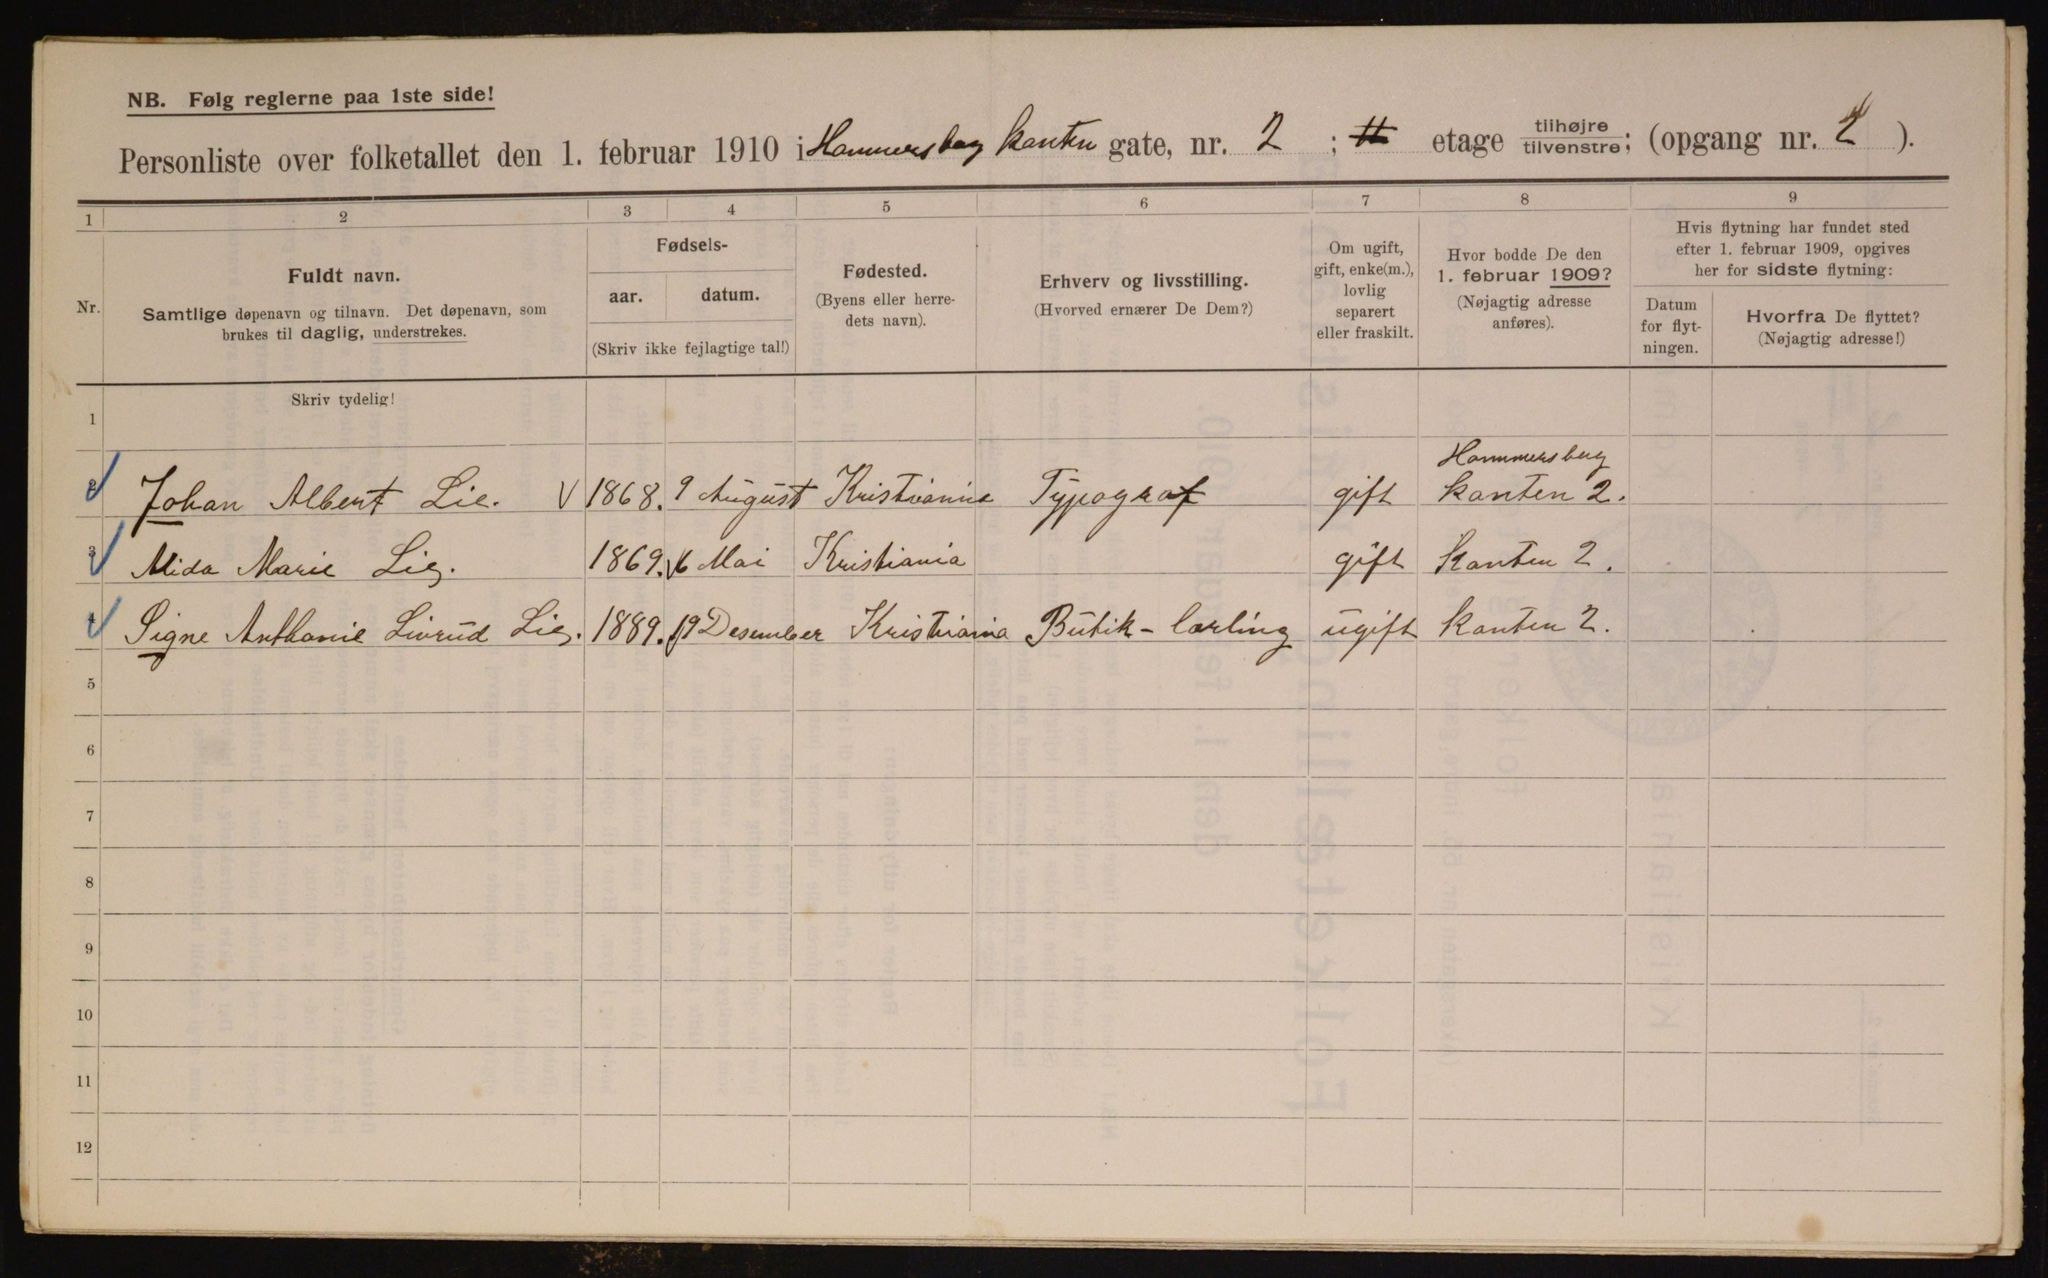 NB. Følg reglerne paa 1ste side!
Personliste over folketallet den 1. februar 1910 i Hammersborg kanten gate, nr. 2 ; etage tilhøjre tilvenstre; (opgang nr. 2 ).
1 2 3 4 5 6 7 8 9
Nr.
Fuldt navn.
Samtlige døpenavn og tilnavn. Det døpenavn, som
brukes til daglig, understrekes.
Fødsels-
aar. datum.
(Skriv ikke fejlagtige tal!)
Fødested.
(Byens eller herre-
dets navn).
Erhverv og livsstilling.
(Hvorved ernærer De Dem?)
Om ugift,
gift, enke(m.),
lovlig
separert
eller fraskilt.
Hvor bodde De den
1. februar 1909?
(Nøjagtig adresse
anføres).
Hvis flytning har fundet sted
efter 1. februar 1909, opgives
her for sidste flytning:
Datum
for flyt-
ningen.
Hvorfra De flyttet?
(Nøjagtig adresse!)
Skriv tydelig!
1
2 Johan Albert Lie. V 1868. 9 August Kristiania Typograf gift Hammersborg kanten 2.
3 Alida Marie Lie. 1869. 6 Mai Kristiania gift Kanten 2.
4 Signe Anthonie Livrud Lie. 1889. 19 Desember Kristiania Butik-lærling ugift kanten 2.
5
6
7
8
9
10
11
12